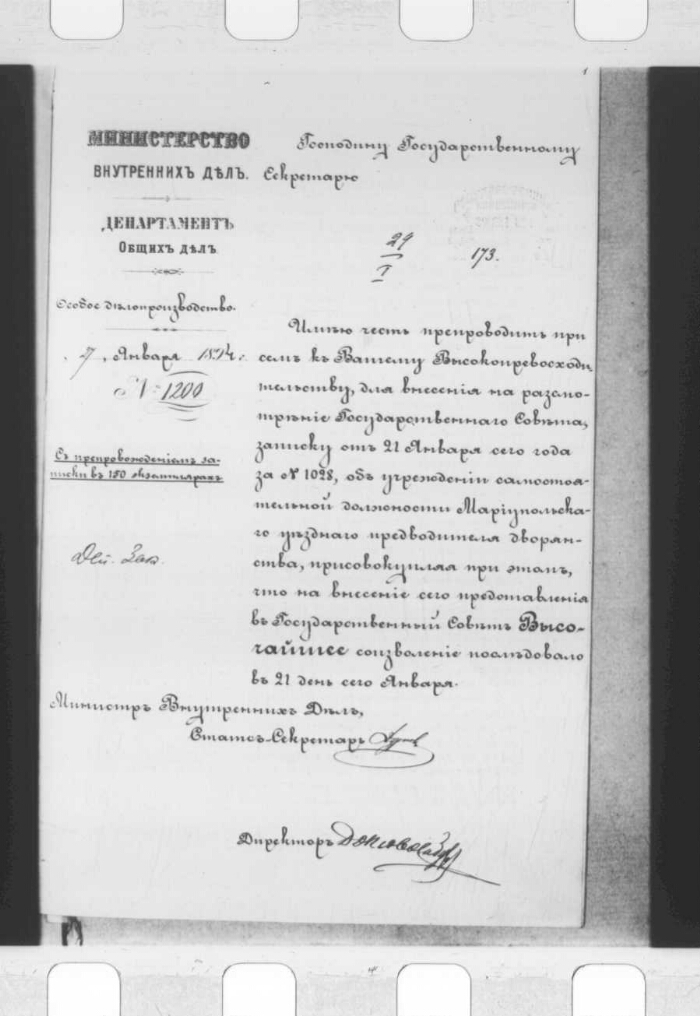 МИНИСТЕРСТВО
ВНУТРЕННИХЪ ДѢЛЪ.
ДЕПАРТАМЕНТЪ
Общихъ дѣлъ
Особое дѣлопроизводство.
Января
№ 1200
Съ препровожденіемъ за-
писки въ 150 экземплярахъ
Господину Государственному
Секретарю
29
I
173.
Имѣю честь препроводить при
семъ къ Вашему Высокопревосходи-
тельству, для внесенія на разсмо-
трѣніе Государственнаго Совѣта,
записку отъ 21 Января сего года
за № 1028, объ учрежденіи самостоя-
тельной должности Маріупольска-
го уѣзднаго предводителя дворян-
ства, присовокупляя при этомъ,
что на внесеніе сего представленія
въ Государственный Совѣтъ Высо-
чайшее соизволеніе послѣдовало
въ 21 день сего Января.
Министръ Внутреннихъ Дѣлъ,
Статсъ-Секретарь
Директоръ